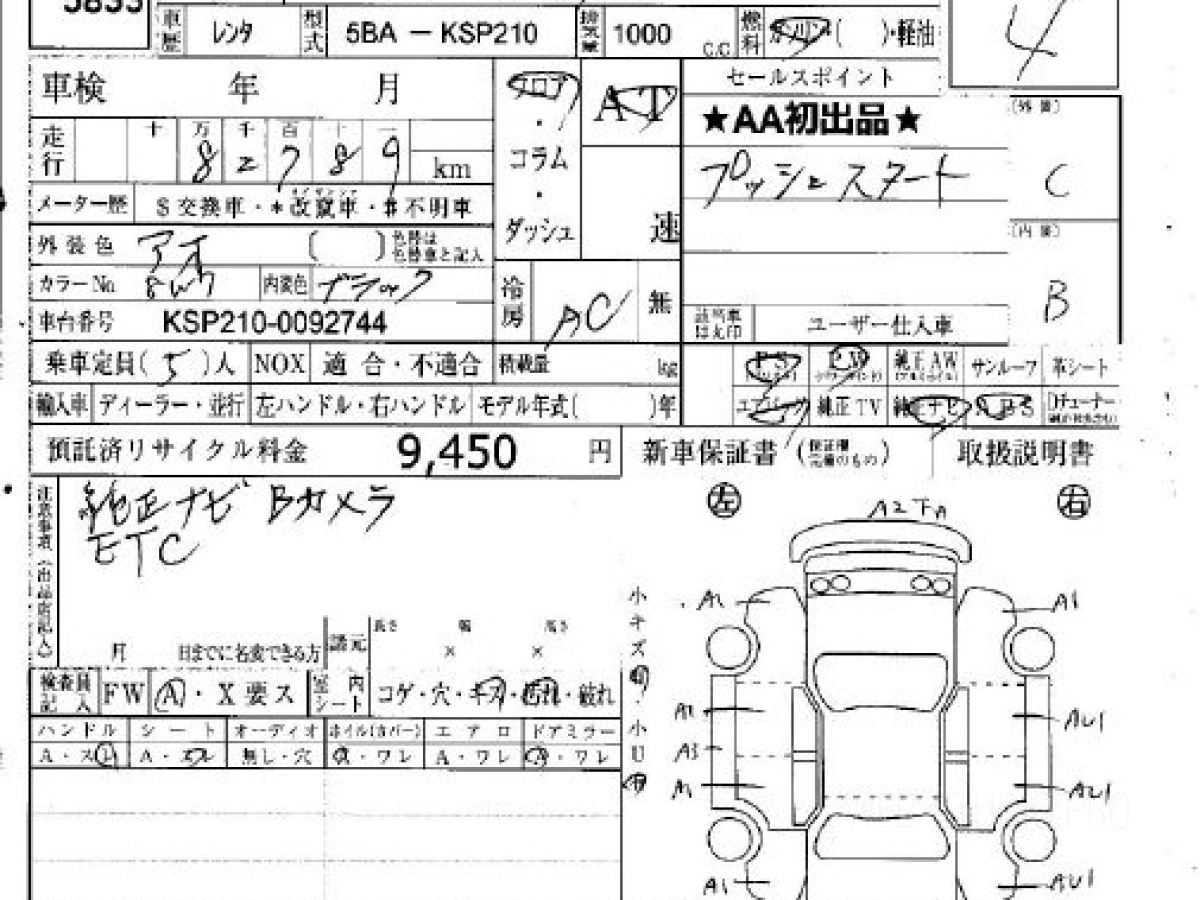 5833
車歴 レンタ 型式 5BA － KSP210 排気量 1000 C.C 燃料 ガソリン( )・軽油
4
車検 年 月
フロア・コラム・ダッシュ
AT
速
セールスポイント
★AA初出品★
プッシュスタート
(外装)
C
(内装)
B
走行 十 万 千 百 十 一
8 2 7 8 9 km
メーター歴 $交換車・*改竄車・#不明車
外装色 アイ ( ) 色替は色替車と記入
カラーNo 8W7 内装色 ブラック
冷房 AC 無
車台番号 KSP210-0092744
該当車は丸印 ユーザー仕入車
乗車定員( 5 )人 NOX 適合・不適合 積載量 kg
PS PW 純正AW サンルーフ 革シート
輸入車 ディーラー・並行 左ハンドル・右ハンドル モデル年式( )年
エアバック 純正TV 純正ナビ ABS Dチューナー
預託済リサイクル料金 9,450 円
新車保証書 (保証欄完備のもの) 取扱説明書
注意事項(出品店記入)
純正ナビ Bカメラ
ETC
月 日までに名変できる方 諸元 長さ × 幅 × 高さ
検査員記入 FW A・X要ス 室内シート コゲ・穴・キズ・汚れ・破れ
ハンドル シート オーディオ ホイル(カバー) エアロ ドアミラー
A・スレ A・スレ 無し・穴 A・ワレ A・ワレ A・ワレ
左 右
A2下A
小キズ
・小U
A1 A1
A2 AU1
A3
A1 AU1
A1 AU1